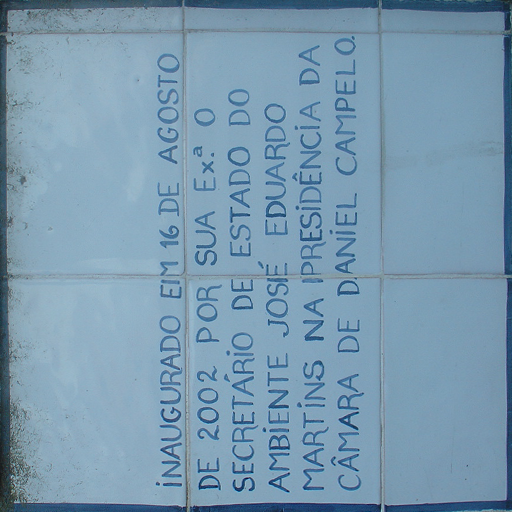 INAUGURADO EM 16 DE AGOSTO
DE 2002 POR SUA Ex.ª O
SECRETÁRIO DE ESTADO DO
AMBIENTE JOSÉ EDUARDO
MARTINS NA PRESIDÊNCIA DA
CÂMARA DE DANIEL CAMPELO.